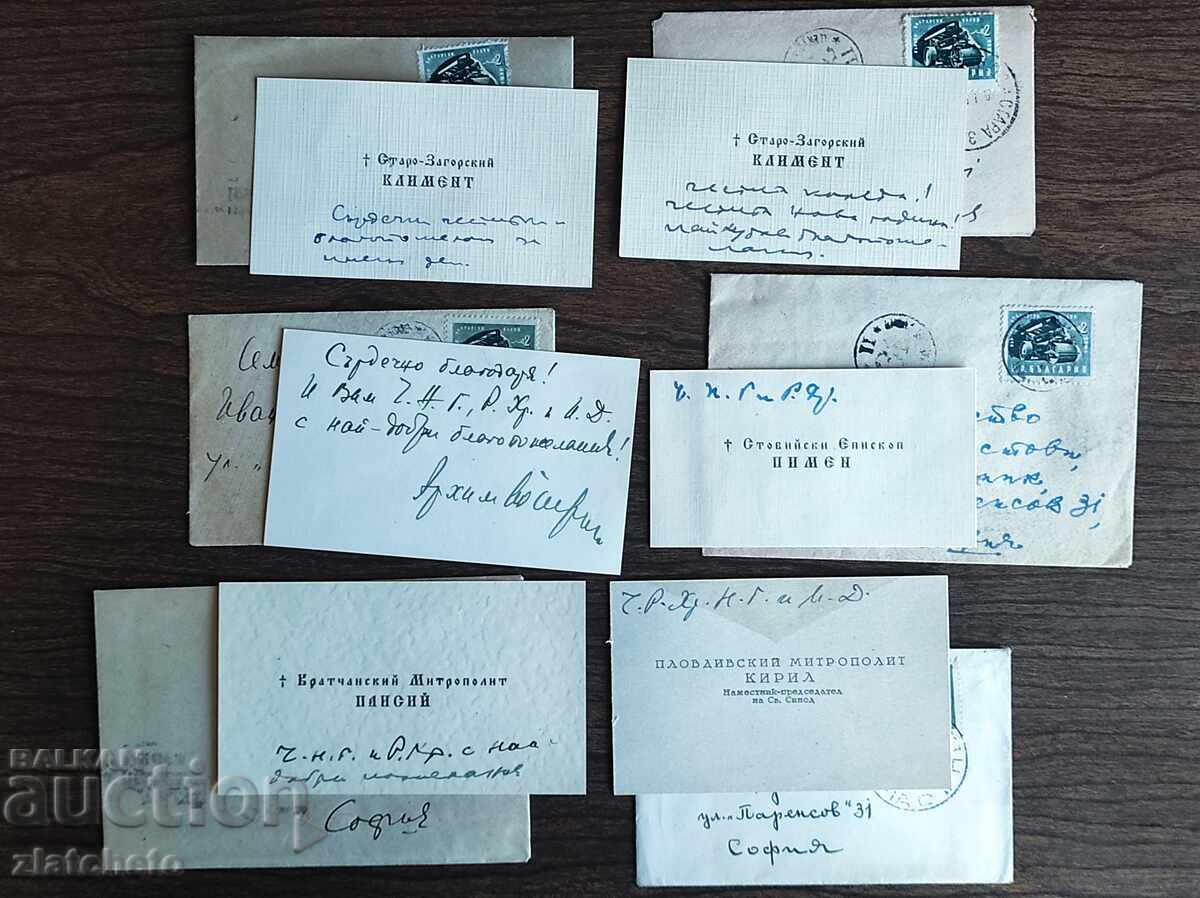 † Старо-Загорский
КЛИМЕНТ
Сърдечни
благопожелания за
имен ден.
СТАРА З
† Старо-Загорский
КЛИМЕНТ
честита коледа!
честита нова година!
най-хубави благопоже-
лания.
Сем
Иван
ул. "
Сърдечно благодаря!
И Вам Ч. Н. Г., Р. Хр. и И. Д.
с най-добри благопожелания!
Архим
БЪЛГАРИЯ
Ч. Н. Г. и Р. Хр.
† Стобийски Епископ
ПИМЕН
ство
стови,
енсов 31,
† Вратчанский Митрополит
ПАИСИЙ
Ч. Н. Г. и Р. Хр. с най-
добри пожелания
София
Ч. Р. Хр. Н. Г. и И. Д.
ПЛОВДИВСКИЙ МИТРОПОЛИТ
КИРИЛ
Наместник-председател
на Св. Синод
ул. „Паренсов" 31
София
BALKAN
auction
zlatcheto